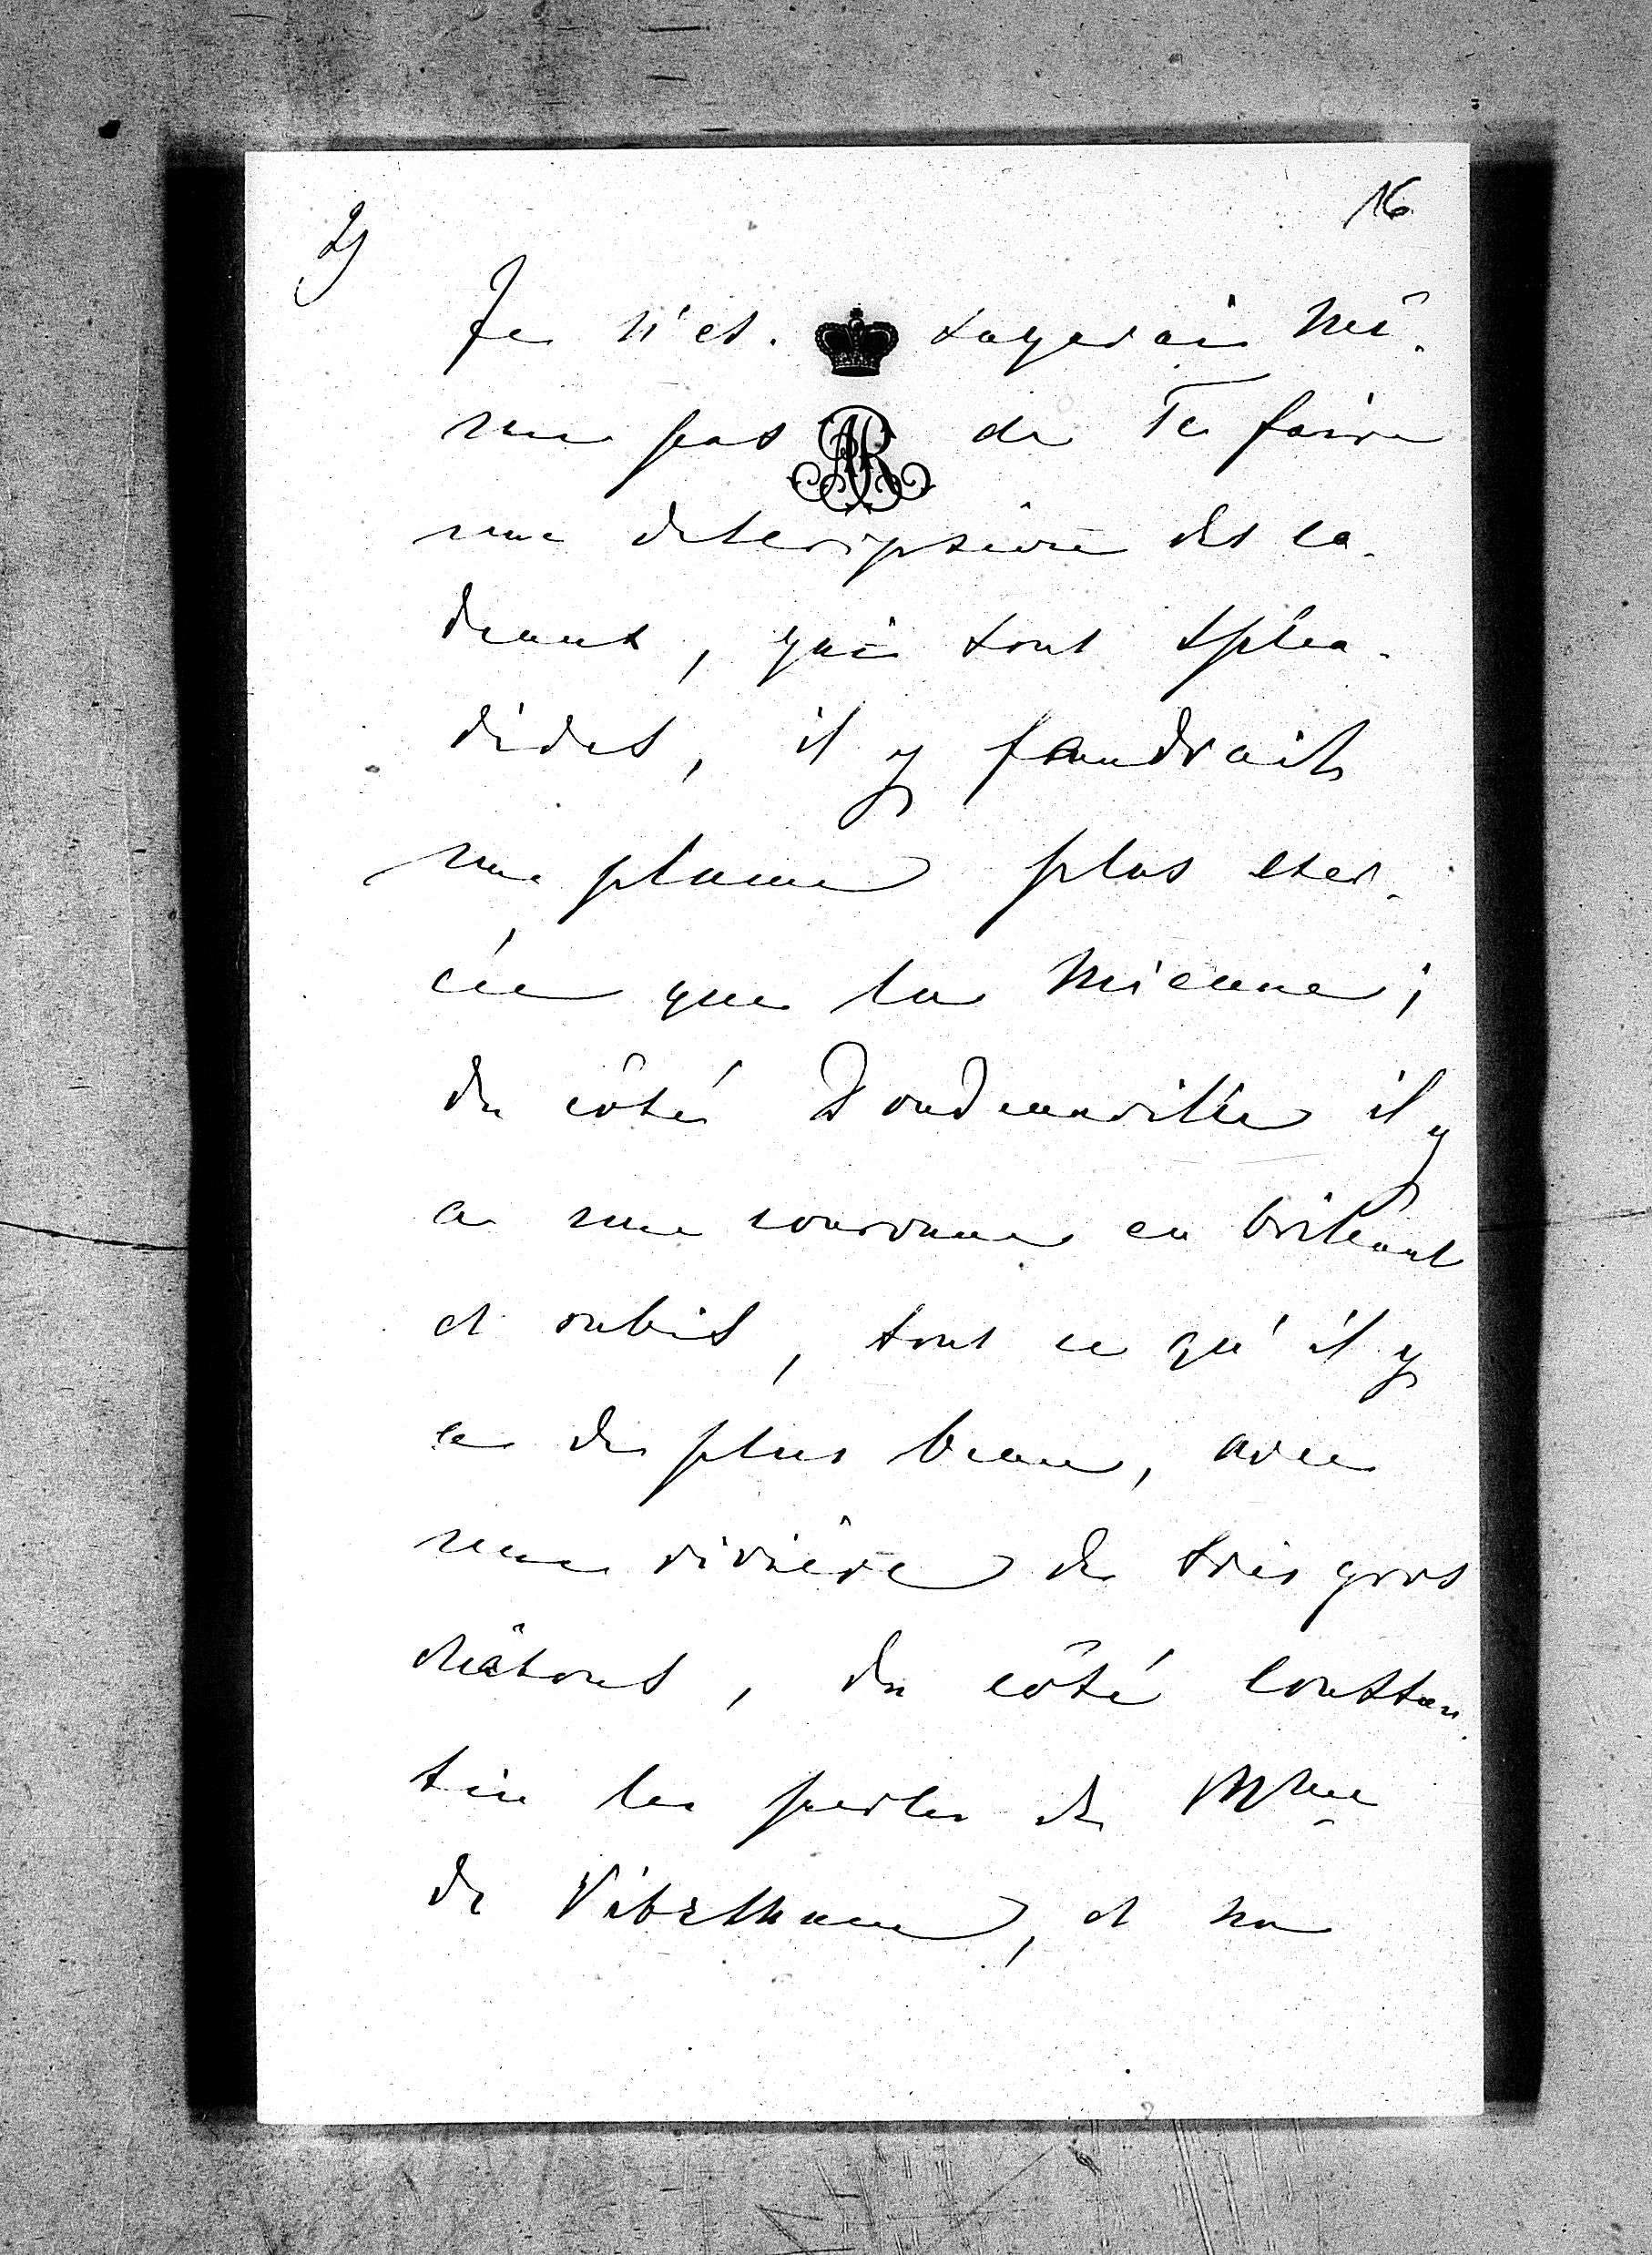 2) 16
Je n'es-sayerai mê-
me pas de Te faire
une description des ca-
deaux, qui sont splen-
dides, il y faudrait
une plume plus exer-
cée que la mienne;
du côté Doudeauville il y
a une couronne en brillants
et rubis, tout ce qu'il y
a de plus beau, avec
une rivière de très gros
châtons, du côté Constan-
tin les perles de Mme
de Vibrthum, et ma